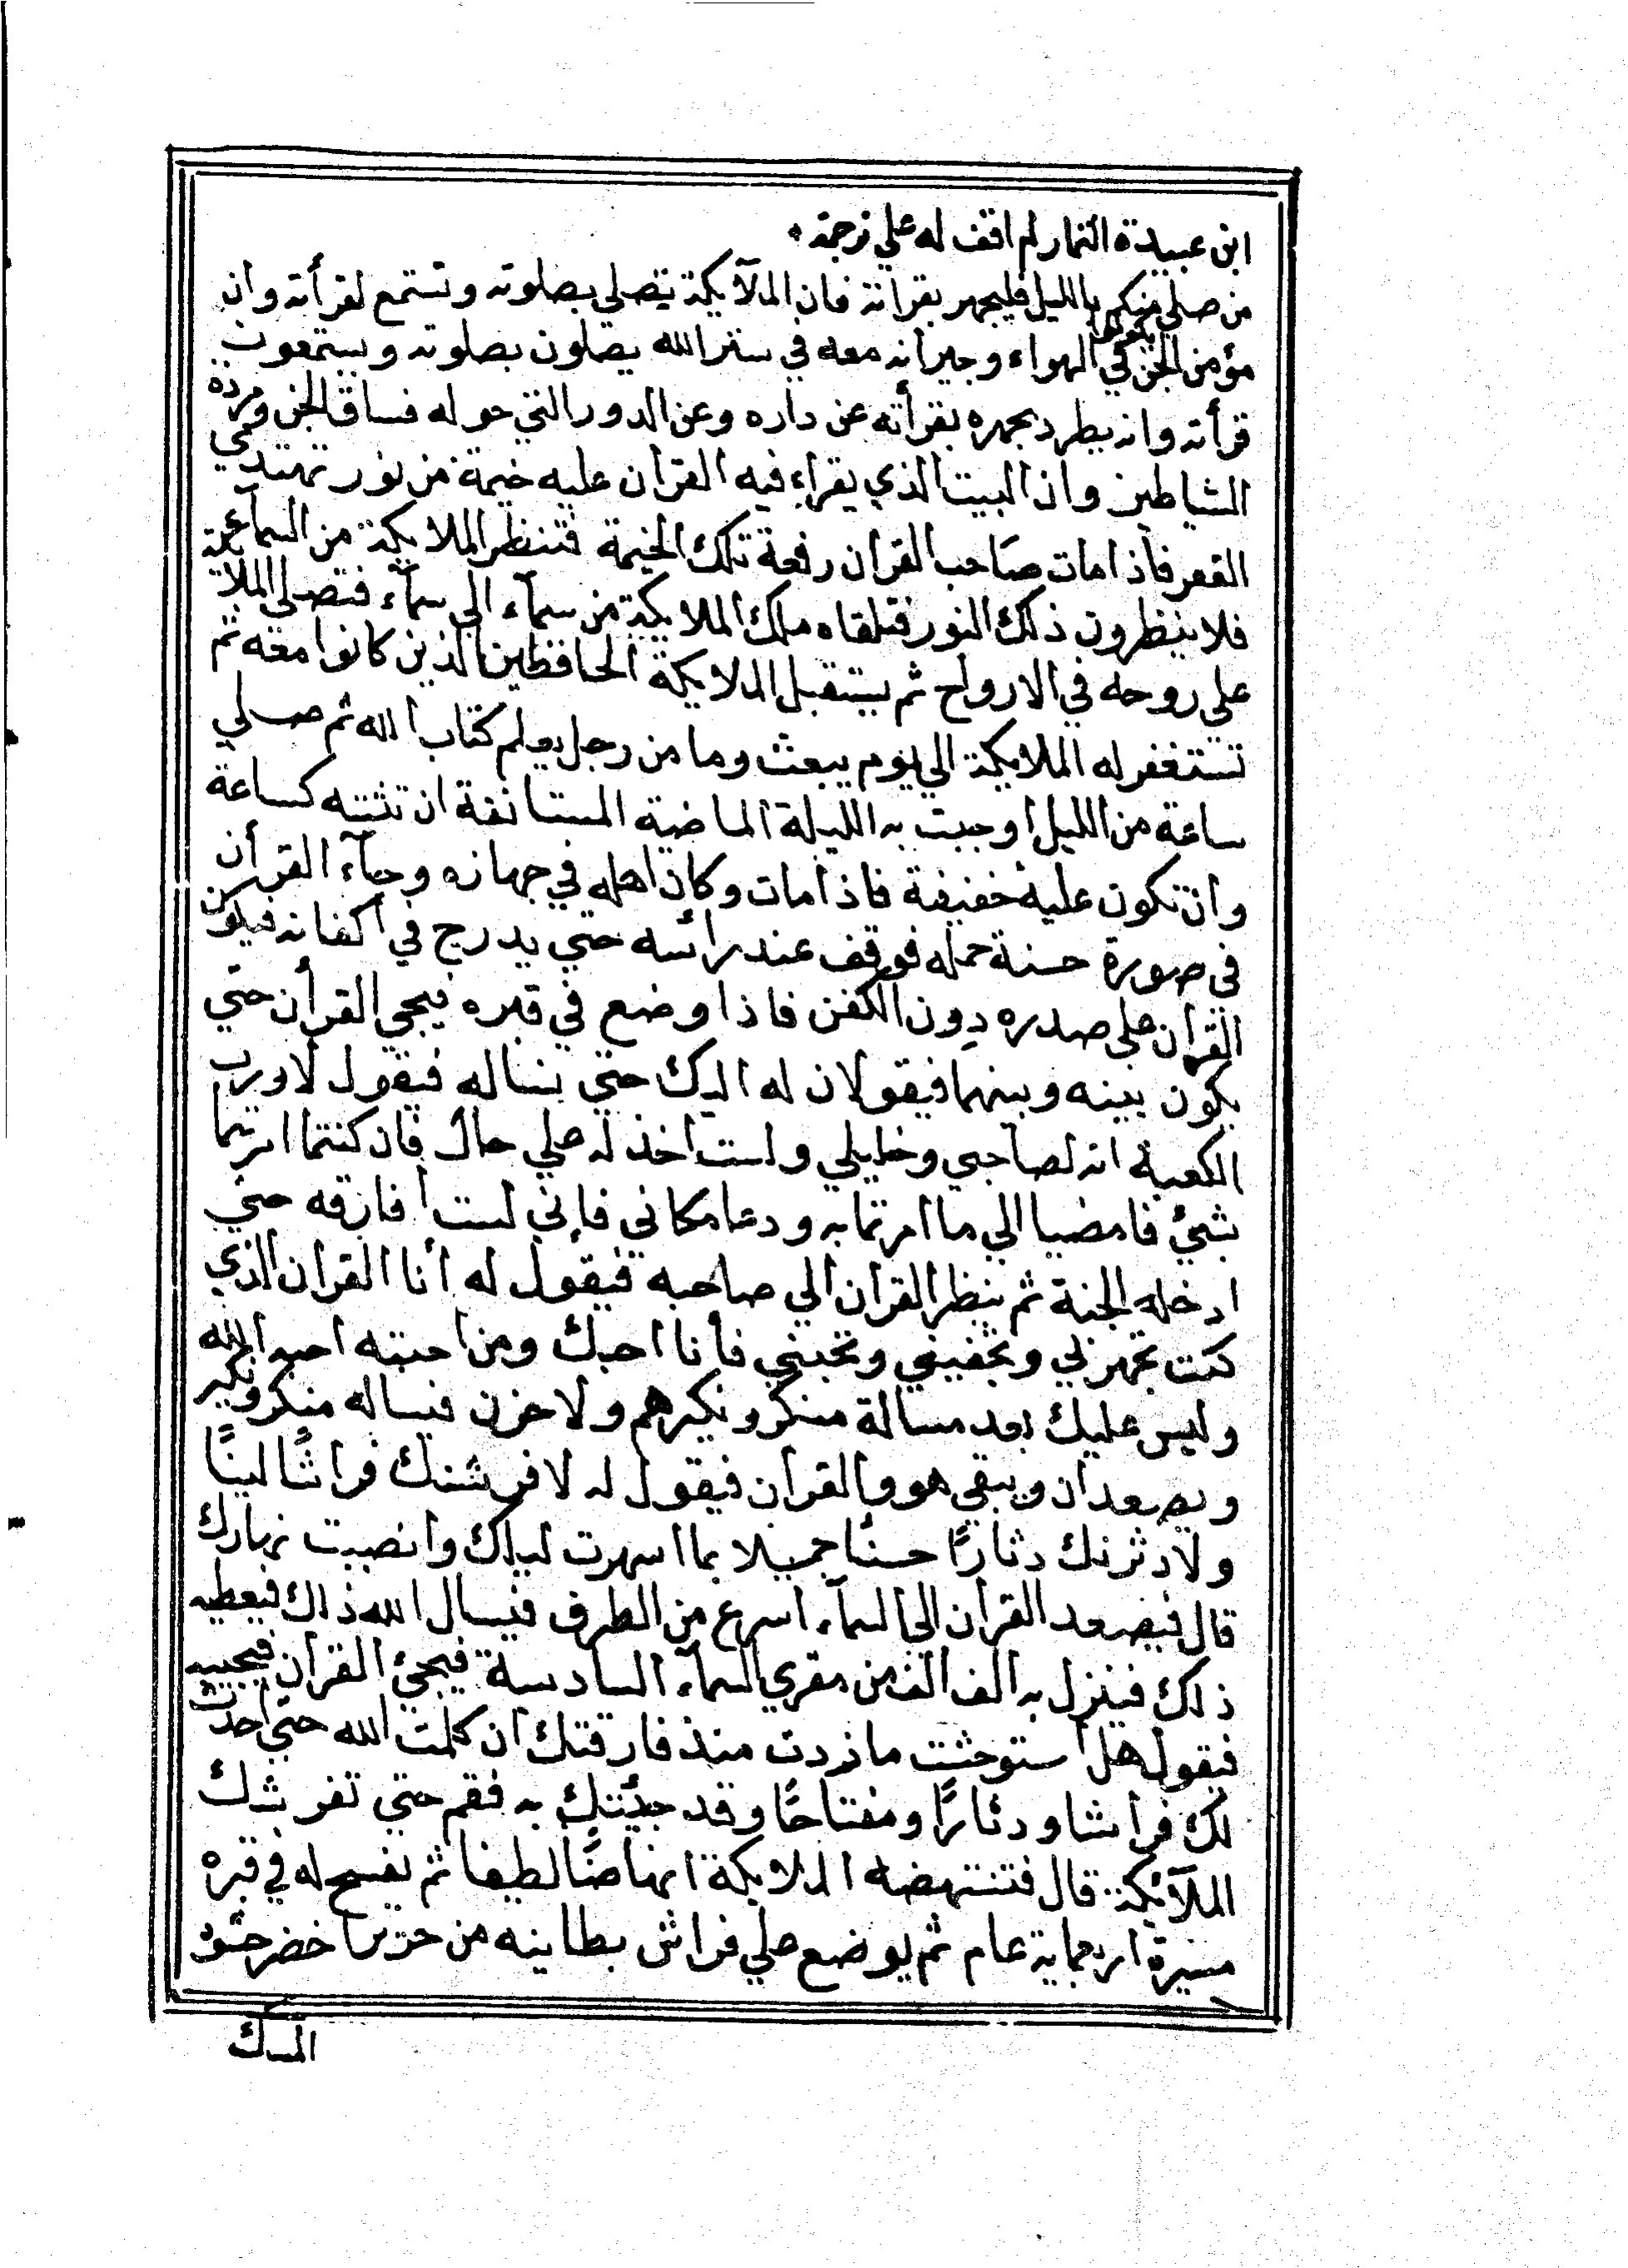 ابن عبيدة التمار لم اقف له علي ترجمة
من صلي منكم بالليل فليجهر بقراته فان الملآيكة تصلي بصلوته وتستمع لقرأته وان
مؤمن الجن في الهواء وجيرانه معه في ستر الله يصلون بصلوته ويستمعون
قرأته وانه يطرد بجهره بقرأته عن داره وعن الدور التي حوله فساق الجن ومردة
الشياطين وان البيت الذي يقراء فيه القران عليه خيمة من نور تهتدي
القعر فاذا مات صاحب القران رفعة تلك الخيمة فتنظر الملايكة من السمآء
فلا ينظرون ذلك النور فتلقاه ملك الملايكة من سمآء الي سمآء فتصلي الملايكة
علي روحه في الارواح ثم يستقبل الملايكة الحافظين الذين كانوا معه ثم
تستغفر له الملايكة الي يوم يبعث وما من رجل يعلم كتاب الله ثم صلي
ساعة من الليل اوجبت به الليلة الماضية المستانفة ان تثبته كساعة
وان تكون عليه خفيفة فاذا مات وكان اهله في جهازه وجآء القرأن
في صورة حسنة حمله فوقف عند رأسه حتي يدرج في أكفانه فيكون
القرأن علي صدره دون الكفن فاذا وضع في قبره فيجي القرأن حتي
يكون بينه وبينهما فيقولان له اليك حتي نساله فيقول لا ورب
الكعبة انه لصاحبي وخليلي ولست اخذله علي حال فان كنتما امرتما
بشئ فامضيا الي ما امرتما به ودعا مكاني فإني لست أفارقه حتي
ادخله الجنة ثم ينظر القران الي صاحبه فيقول له أنا القران الذي
كنت تجهر بي وتخفيني وتحبني فأنا احبك ومن احببته احبه الله
وليس عليك بعد مسالة منكر ونكير هم ولا حزن فيساله منكر ونكير
ويصعدان ويبقي هو والقران فيقول له لافرشنك فراشًا لينًا
ولادثرنك دثارًا حسنًا جميلا بما اسهرت ليلك وانصبت نهارك
قال فيصعد القران الي السمآء اسرع من الطرف فيسال الله ذلك فيعطيه
ذلك فينزل به الف الف من مقربي السمآء السادسة فيجئ القرآن فيحييه
فيقول هل استوحشت ما زدت منذ فارقتك ان كلمت الله حتي اخذت
لك فراشا ودثارًا ومفتاحًا وقد جئتك به فقم حتي تفرشك
الملآئكة قال فتنتهضه الملايكة انهاضًا لطيفا ثم يفسح له في قبره
مسيرة اربعماية عام ثم يوضع علي فراش بطاينه من حرير اخضر حشوه
المسك